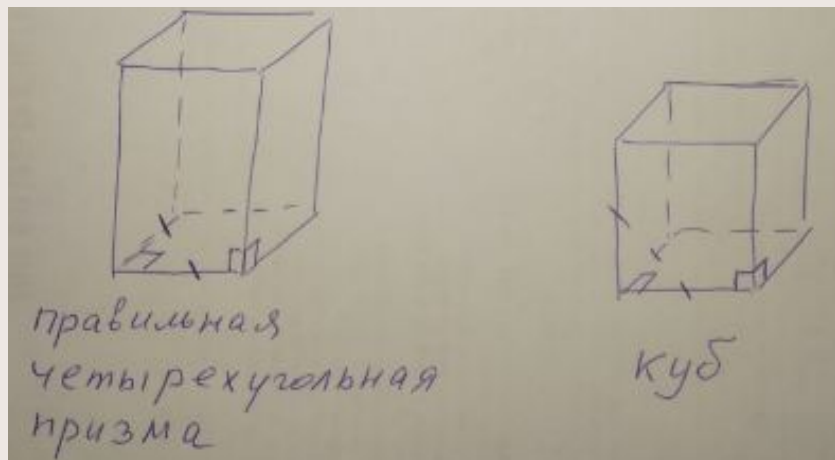 правильная
четырехугольная
призма
куб